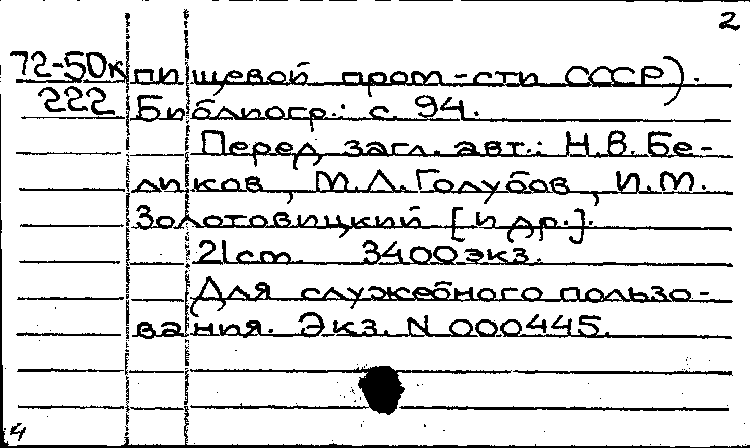 2
72-50к пищевой пром-сти СССР).
222 Библиогр.: с. 94.
Перед загл. авт.: Н.В. Бе-
ликов, М.Л. Голубов, И.М.
Золотовицкий [и др.].
21 cm. 3400 экз.
Для служебного пользо-
вания. Экз. N 000445.
4